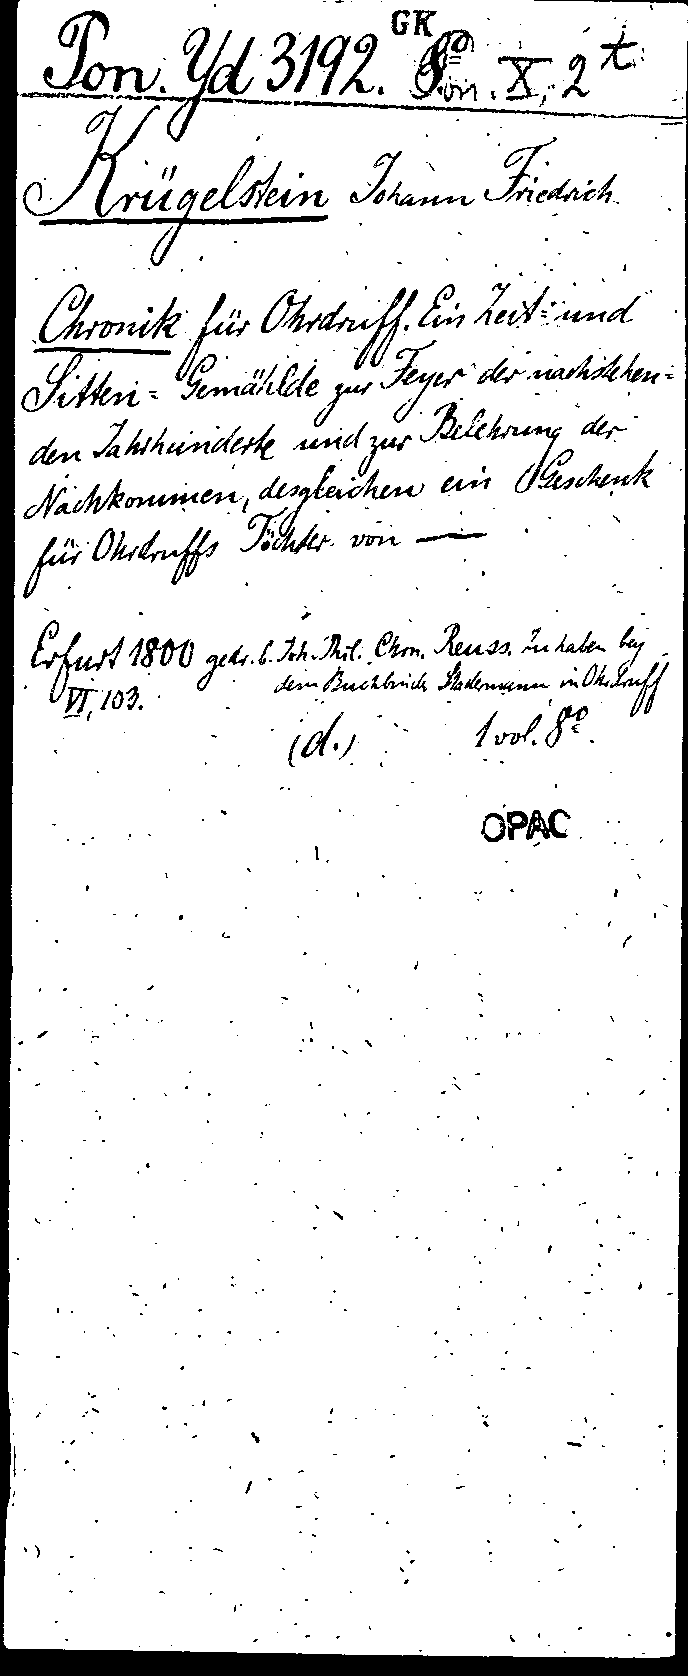 GK
Pon. Yd 3192. 8º Pon. X, 2t
Krügelstein Johann Friedrich.
Chronik für Ohrdruff. Ein Zeit= und
Sitten= Gemählde zur Feyer der nachstehen=
den Jahrhunderte und zur Belehrung der
Nachkommen, desgleichen ein Geschenk
für Ohrdruffs Töchter von —
Erfurt 1800 gedr. b. Joh. Phil. Chrn. Reuss. Zu haben bey
dem Buchbinder Stadermann in Ohrdruff
VI, 103.
(d.) 1 vol. 8º.
OPAC